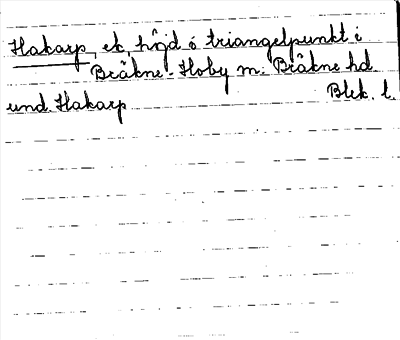 Hakarp, ek, höjd o triangelpunkt i
Bräkne-Hoby sn: Bräkne hd
und. Hakarp Blek. l.